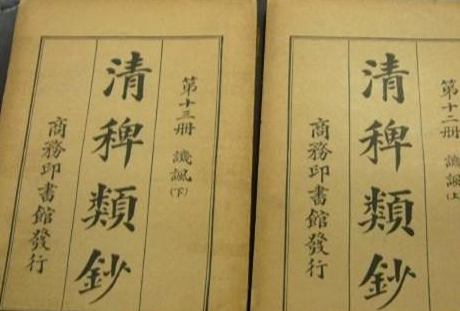 第十三册 譏諷(下)
清稗類鈔
商務印書館發行
第十二册 譏諷(上)
清稗類鈔
商務印書館發行